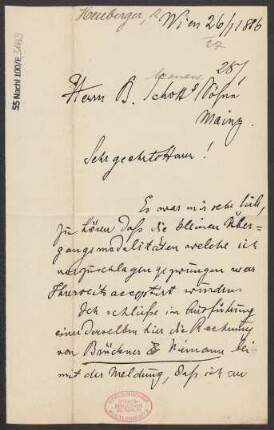 Heuberger, R Wien 26/1 1886
28/
Herrn B. Schott's Söhne
Mainz.
Sehr geehrter Herr!
Es war mir sehr lieb,
zu hören daß die kleinen Über-
gangsmodalitäten welche ich
vorzuschlagen gezwungen war
Ihrerseits acceptirt wurden.
Ich schließe in Ausführung
einer derselben hier die Rechnung
von Brückner & Niemann bei
mit der Meldung, daß ich an
55 Nachl 100/B